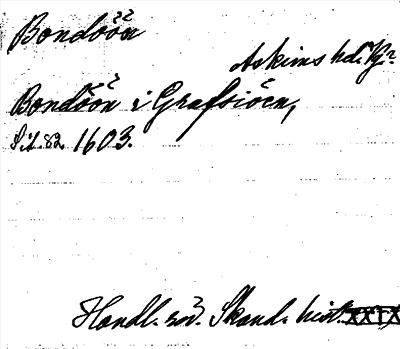 Bondöön
Askims hd. Vg.
Bondöön i Grafsiöen,
s. 82. 1603.
Handl. rör. Skand. hist. XXIX